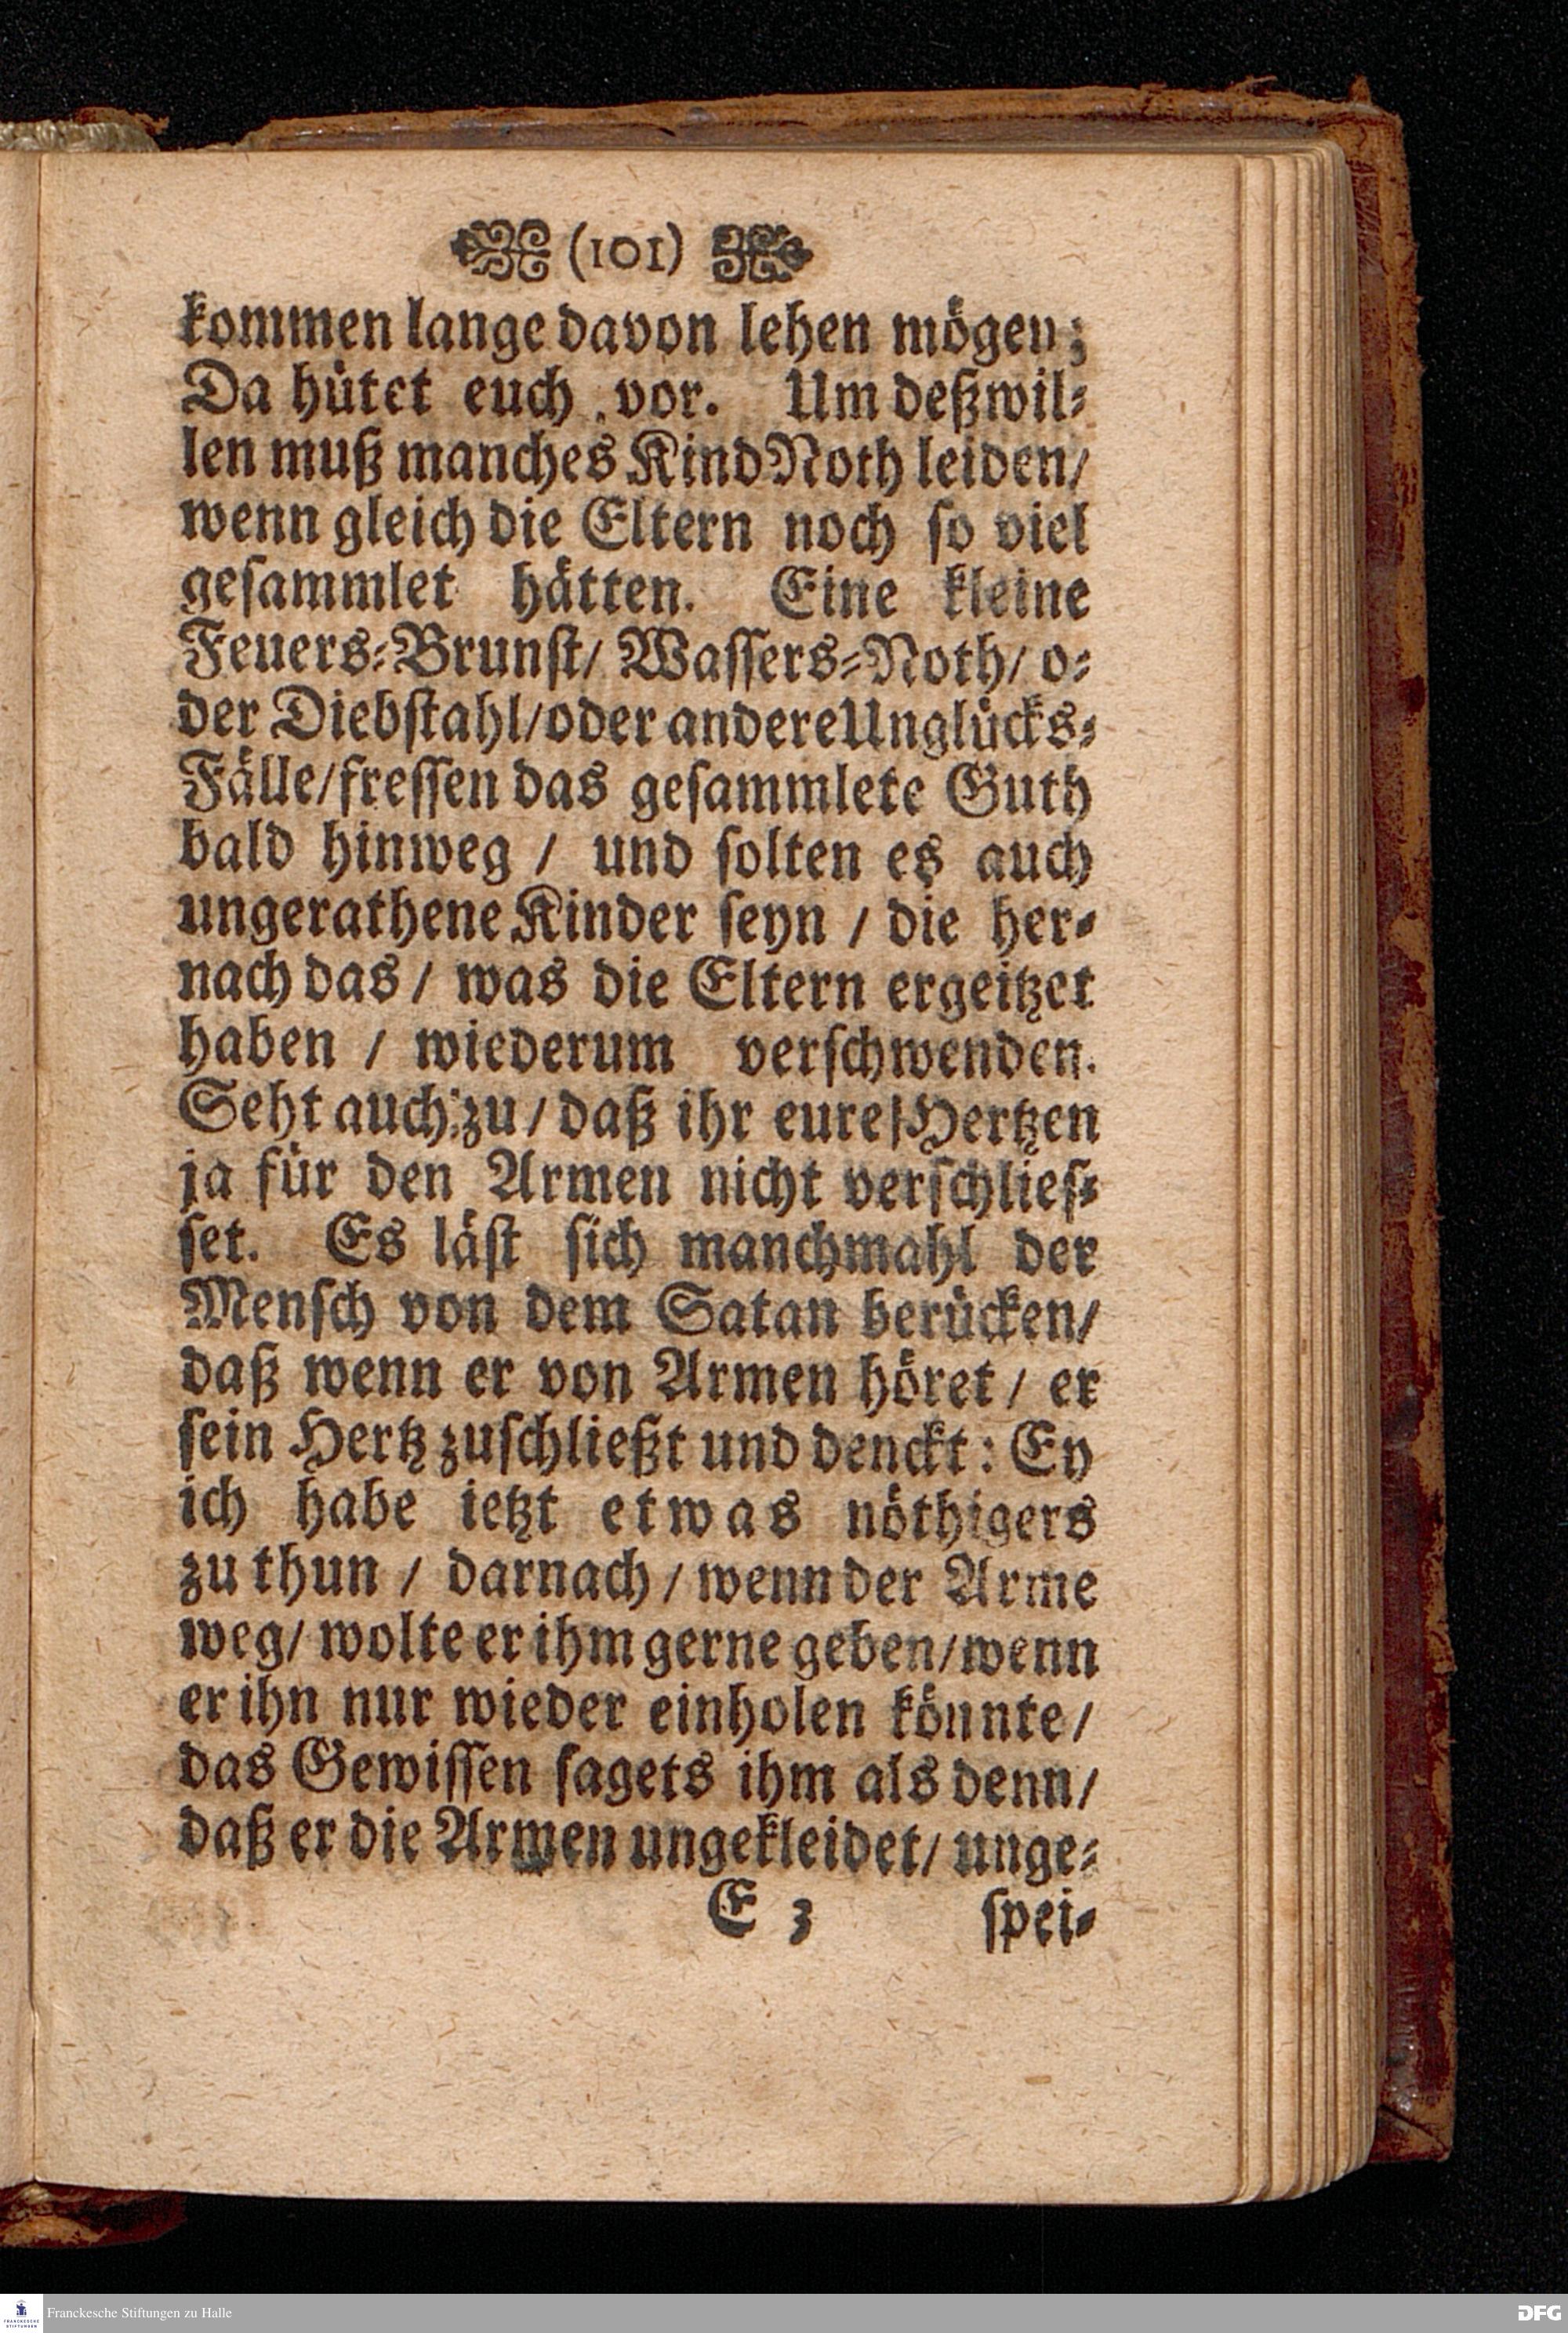 (101)
kommen lange davon lehen mögen;
Da hütet euch vor. Um deßwil-
len muß manches Kind Noth leiden/
wenn gleich die Eltern noch so viel
gesammlet hätten. Eine kleine
Feuers-Brunst/ Wassers-Noth/ o-
der Diebstahl/ oder andere Unglücks-
Fälle/ fressen das gesammlete Guth
bald hinweg / und solten es auch
ungerathene Kinder seyn / die her-
nach das / was die Eltern ergeitzet
haben / wiederum verschwenden.
Seht auch zu / daß ihr eure Hertzen
ja für den Armen nicht verschlies-
set. Es läst sich manchmahl der
Mensch von dem Satan berücken/
daß wenn er von Armen höret / er
sein Hertz zuschließt und denckt: Ey
ich habe ietzt etwas nöthigers
zu thun / darnach / wenn der Arme
weg/ wolte er ihm gerne geben/ wenn
er ihn nur wieder einholen könnte/
das Gewissen sagets ihm als denn/
daß er die Armen ungekleidet/ unge-
E 3 spei-
Franckesche Stiftungen zu Halle
DFG